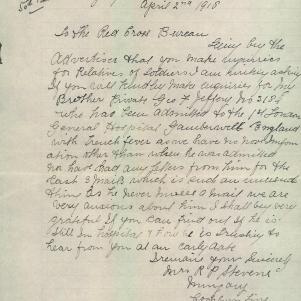 April 2nd 1918
To the Red Cross Bureau
Seing by the
Advertiser that you make inquiries
for Relatives of Soldiers I am kindly asking
If you will kindly make enquiries for my
Brother Private Geo F Jeffery No 2185
who has been admitted to the 1st London
General Hospital Camberwell England
with Trench fever as we have no more Inform
ation other than when he was admitted
nor have had any letters from him for the
last 3 Mails which is such an
thing as he never misses a mail we are
very anxious about him I shall be very
grateful if you can find out if he is
still in hospital &
hear from you at an early date
I remain yours sincerely
Mrs R P Stevens